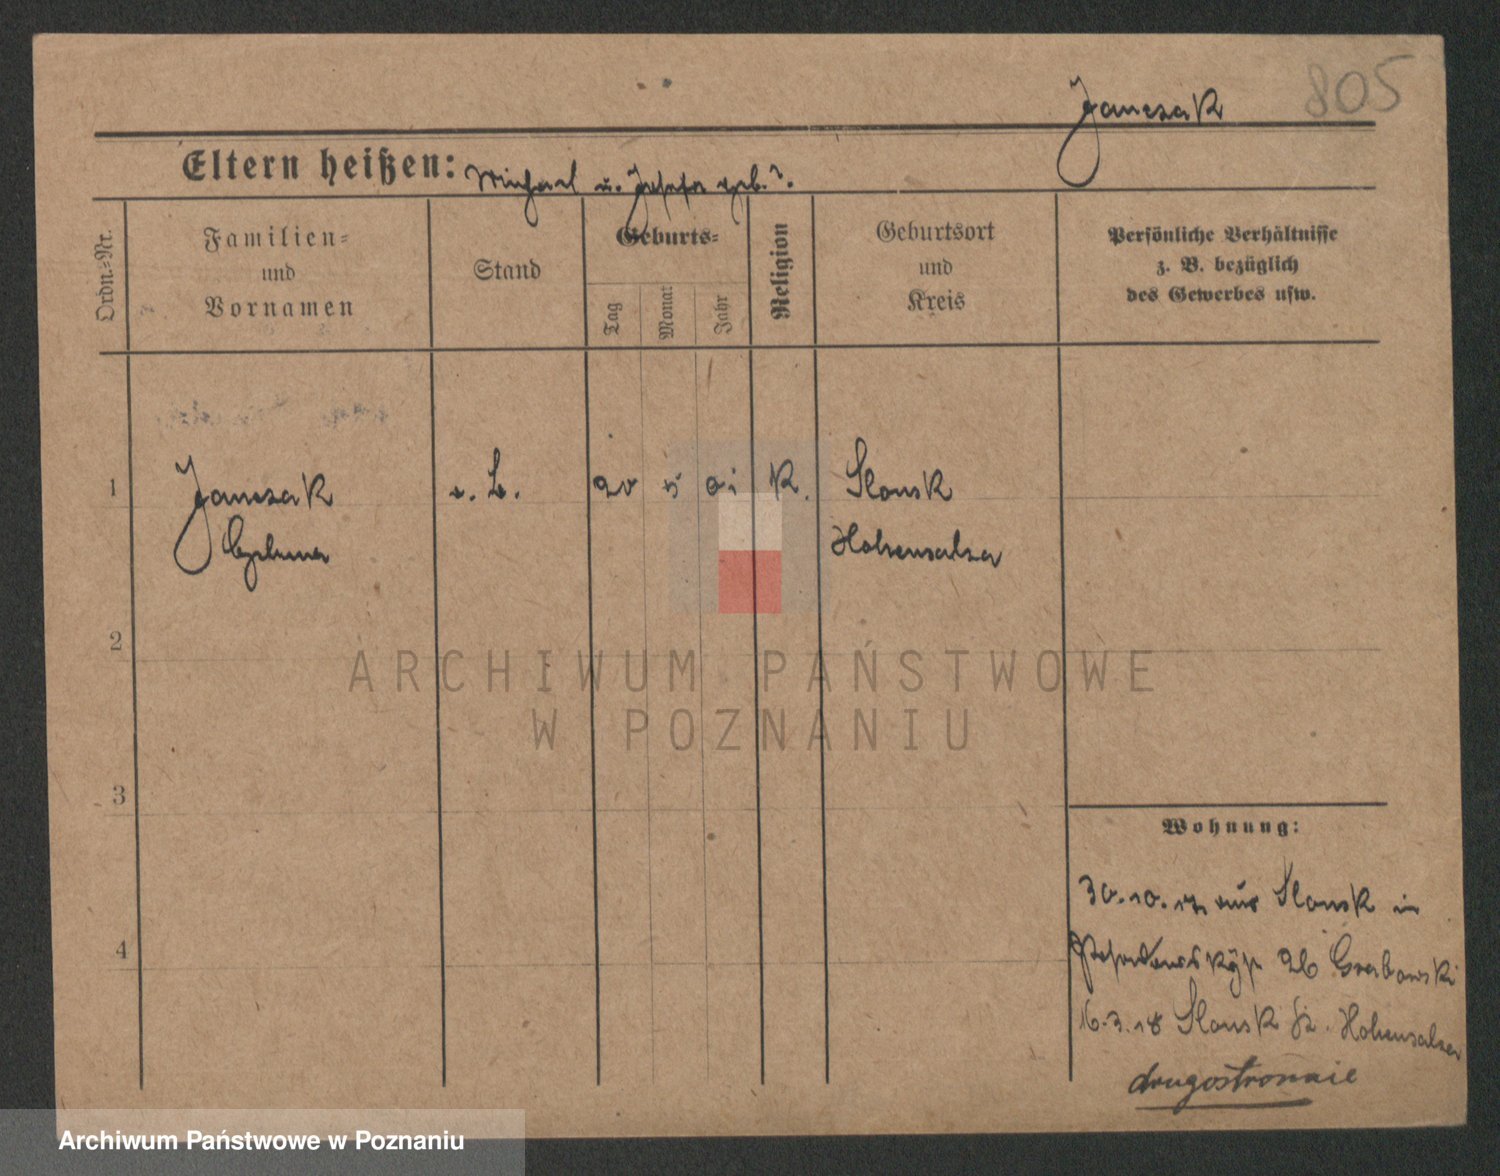 805
Janczak
Eltern heißen: Michael u. Josefa geb. ?.
Ordn.=Nr.
Familien=
und
Vornamen
Stand
Geburts=
Tag
Monat
Jahr
Religion
Geburtsort
und
Kreis
Persönliche Verhältnisse
z. B. bezüglich
des Gewerbes usw.
1 Janczak 20 5 01 K. Slonsk
Hohensalza
2
3
4
Wohnung:
30.10.17 aus Slonsk in
26 Grabowski
16.3.18 Slonsk Hohensalza
drugostronnie
ARCHIWUM PAŃSTWOWE
W POZNANIU
Archiwum Państwowe w Poznaniu